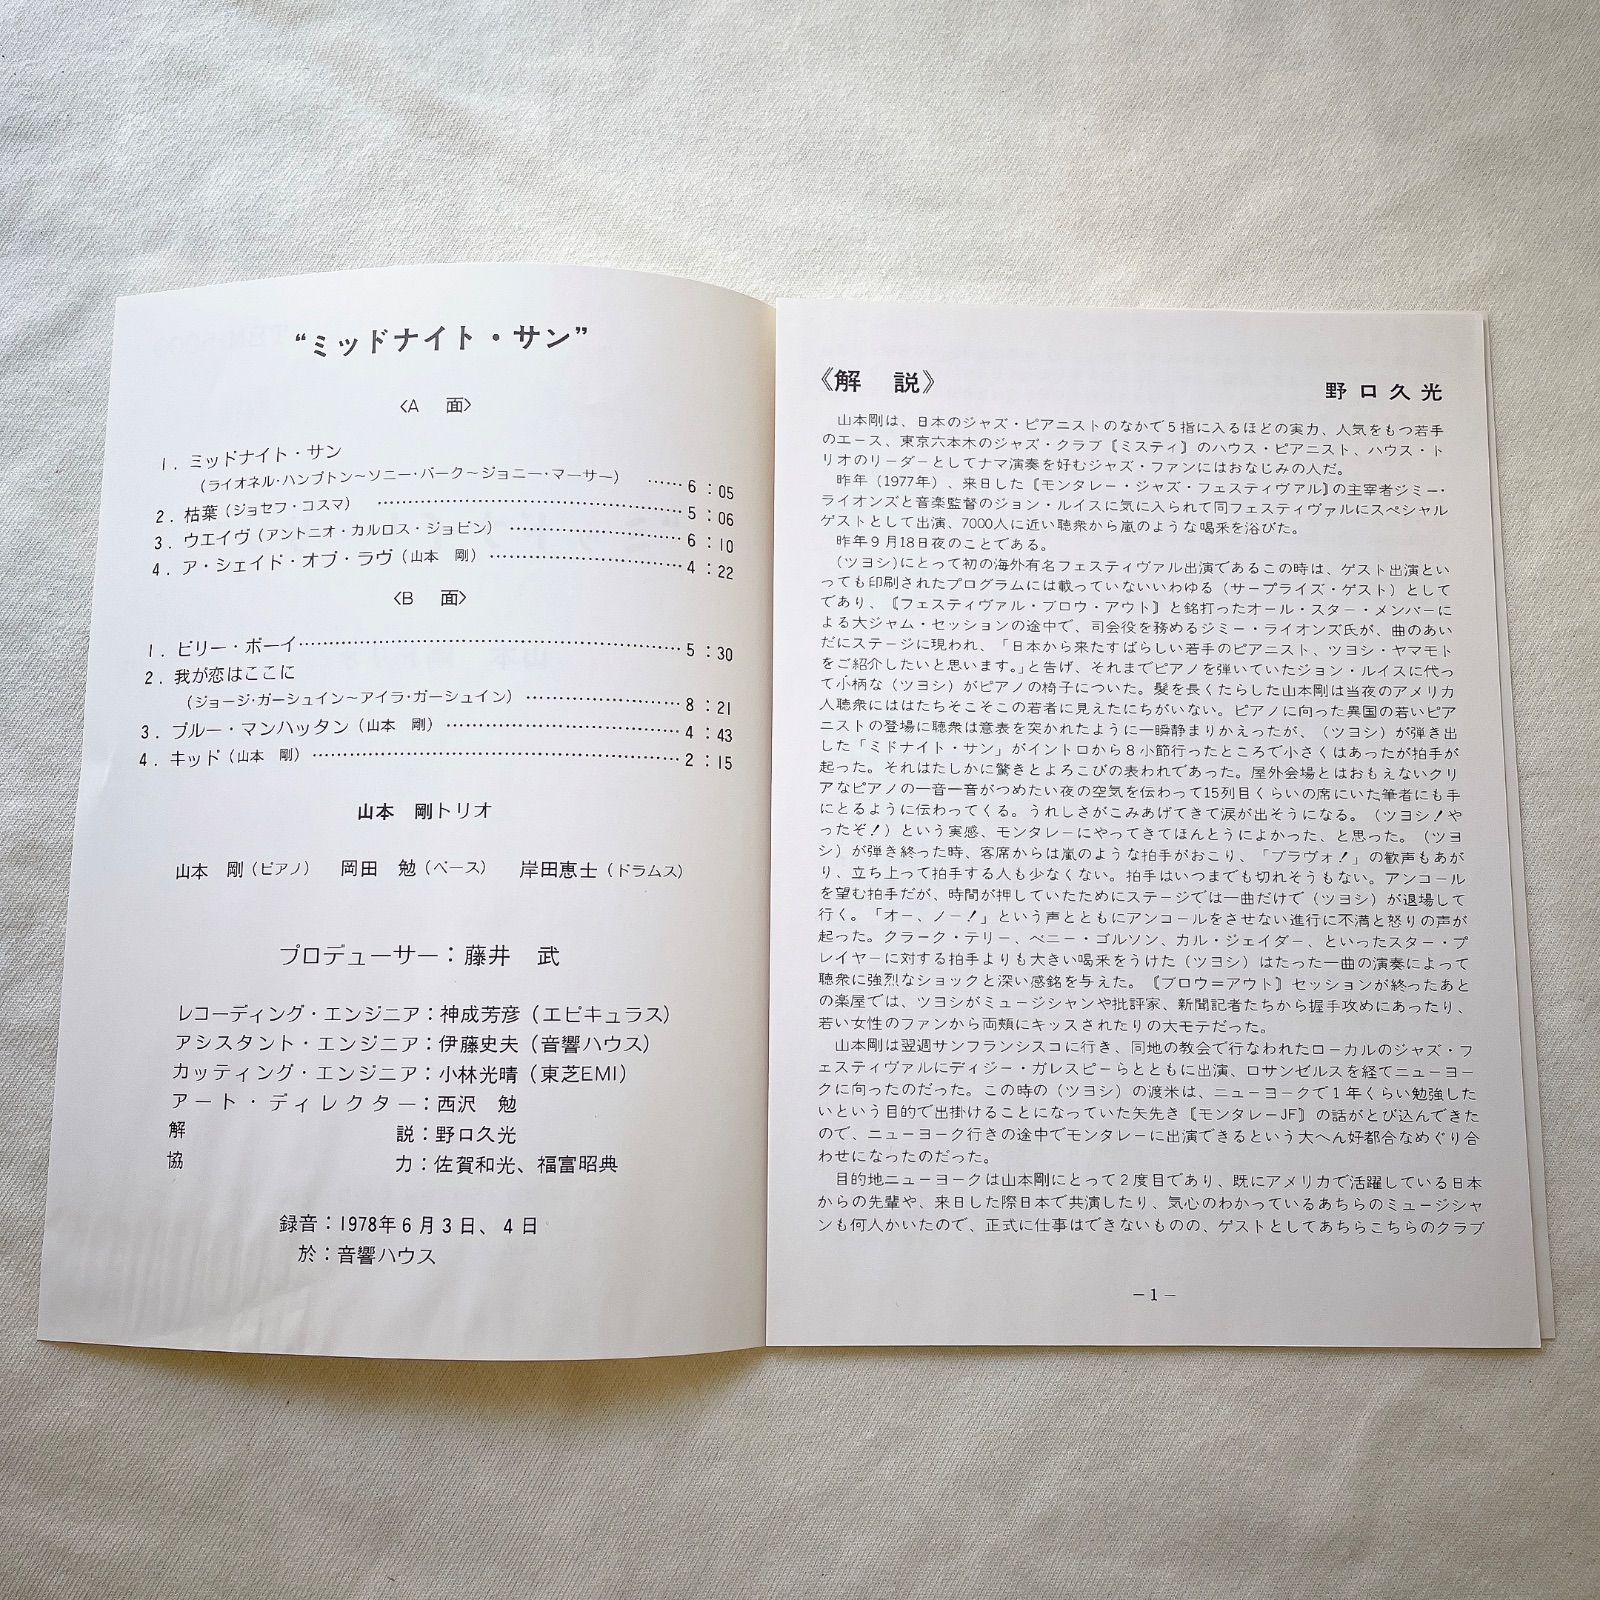 “ミッドナイト・サン”
〈A 面〉
1. ミッドナイト・サン
(ライオネル・ハンプトン〜ソニー・バーク〜ジョニー・マーサー) ……6：05
2. 枯葉(ジョセフ・コスマ) ……………………………………5：06
3. ウエイヴ(アントニオ・カルロス・ジョビン) ……………………6：10
4. ア・シェイド・オブ・ラヴ(山本 剛) ………………………4：22
〈B 面〉
1. ビリー・ボーイ……………………………………………5：30
2. 我が恋はここに
(ジョージ・ガーシュイン〜アイラ・ガーシュイン) …………………8：21
3. ブルー・マンハッタン(山本 剛) …………………………4：43
4. キッド(山本 剛) …………………………………………2：15
山本 剛トリオ
山本 剛(ピアノ) 岡田 勉(ベース) 岸田恵士(ドラムス)
プロデューサー：藤井 武
レコーディング・エンジニア：神成芳彦(エピキュラス)
アシスタント・エンジニア：伊藤史夫(音響ハウス)
カッティング・エンジニア：小林光晴(東芝EMI)
アート・ディレクター：西沢 勉
解 説：野口久光
協 力：佐賀和光、福富昭典
録音：1978年6月3日、4日
於：音響ハウス
《解 説》 野口久光
山本剛は、日本のジャズ・ピアニストのなかで5指に入るほどの実力、人気をもつ若手
のエース、東京六本木のジャズ・クラブ〘ミスティ〙のハウス・ピアニスト、ハウス・ト
リオのリーダーとしてナマ演奏を好むジャズ・ファンにはおなじみの人だ。
昨年(1977年)、来日した〘モンタレー・ジャズ・フェスティヴァル〙の主宰者ジミー・
ライオンズと音楽監督のジョン・ルイスに気に入られて同フェスティヴァルにスペシャル
ゲストとして出演、7000人に近い聴衆から嵐のような喝采を浴びた。
昨年9月18日夜のことである。
(ツヨシ)にとって初の海外有名フェスティヴァル出演であるこの時は、ゲスト出演とい
っても印刷されたプログラムには載っていないいわゆる(サープライズ・ゲスト)として
であり、〘フェスティヴァル・ブロウ・アウト〙と銘打ったオール・スター・メンバーに
よる大ジャム・セッションの途中で、司会役を務めるジミー・ライオンズ氏が、曲のあい
だにステージに現われ、「日本から来たすばらしい若手のピアニスト、ツヨシ・ヤマモト
をご紹介したいと思います。」と告げ、それまでピアノを弾いていたジョン・ルイスに代っ
て小柄な(ツヨシ)がピアノの椅子についた。髪を長くたらした山本剛は当夜のアメリカ
人聴衆にははたちそこそこの若者に見えたにちがいない。ピアノに向った異国の若いピア
ニストの登場に聴衆は意表を突かれたように一瞬静まりかえったが、(ツヨシ)が弾き出
した「ミドナイト・サン」がイントロから8小節行ったところで小さくはあったが拍手が
起った。それはたしかに驚きとよろこびの表われであった。屋外会場とはおもえないクリ
アなピアノの一音一音がつめたい夜の空気を伝わって15列目くらいの席にいた筆者にも手
にとるように伝わってくる。うれしさがこみあげてきて涙が出そうになる。(ツヨシ！や
ったぞ！)という実感、モンタレーにやってきてほんとうによかった、と思った。(ツヨ
シ)が弾き終った時、客席からは嵐のような拍手がおこり、「ブラヴォ！」の歓声もあが
り、立ち上って拍手する人も少なくない。拍手はいつまでも切れそうもない。アンコール
を望む拍手だが、時間が押していたためにステージでは一曲だけで(ツヨシ)が退場して
行く。「オー、ノー！」という声とともにアンコールをさせない進行に不満と怒りの声が
起った。クラーク・テリー、ベニー・ゴルソン、カル・ジェイダー、といったスター・プ
レイヤーに対する拍手よりも大きい喝采をうけた(ツヨシ)はたった一曲の演奏によって
聴衆に強烈なショックと深い感銘を与えた。〘ブロウ＝アウト〙セッションが終ったあと
の楽屋では、ツヨシがミュージシャンや批評家、新聞記者たちから握手攻めにあったり、
若い女性のファンから両頬にキッスされたりの大モテだった。
山本剛は翌週サンフランシスコに行き、同地の教会で行なわれたローカルのジャズ・フ
ェスティヴァルにディジー・ガレスピーらとともに出演、ロサンゼルスを経てニューヨー
クに向ったのだった。この時の(ツヨシ)の渡米は、ニューヨークで1年くらい勉強した
いという目的で出掛けることになっていた矢先き〘モンタレーJF〙の話がとび込んできた
ので、ニューヨーク行きの途中でモンタレーに出演できるという大へん好都合なめぐり合
わせになったのだった。
目的地ニューヨークは山本剛にとって2度目であり、既にアメリカで活躍している日本
からの先輩や、来日した際日本で共演したり、気心のわかっているあちらのミュージシャ
ンも何人かいたので、正式に仕事はできないものの、ゲストとしてあちらこちらのクラブ
－1－